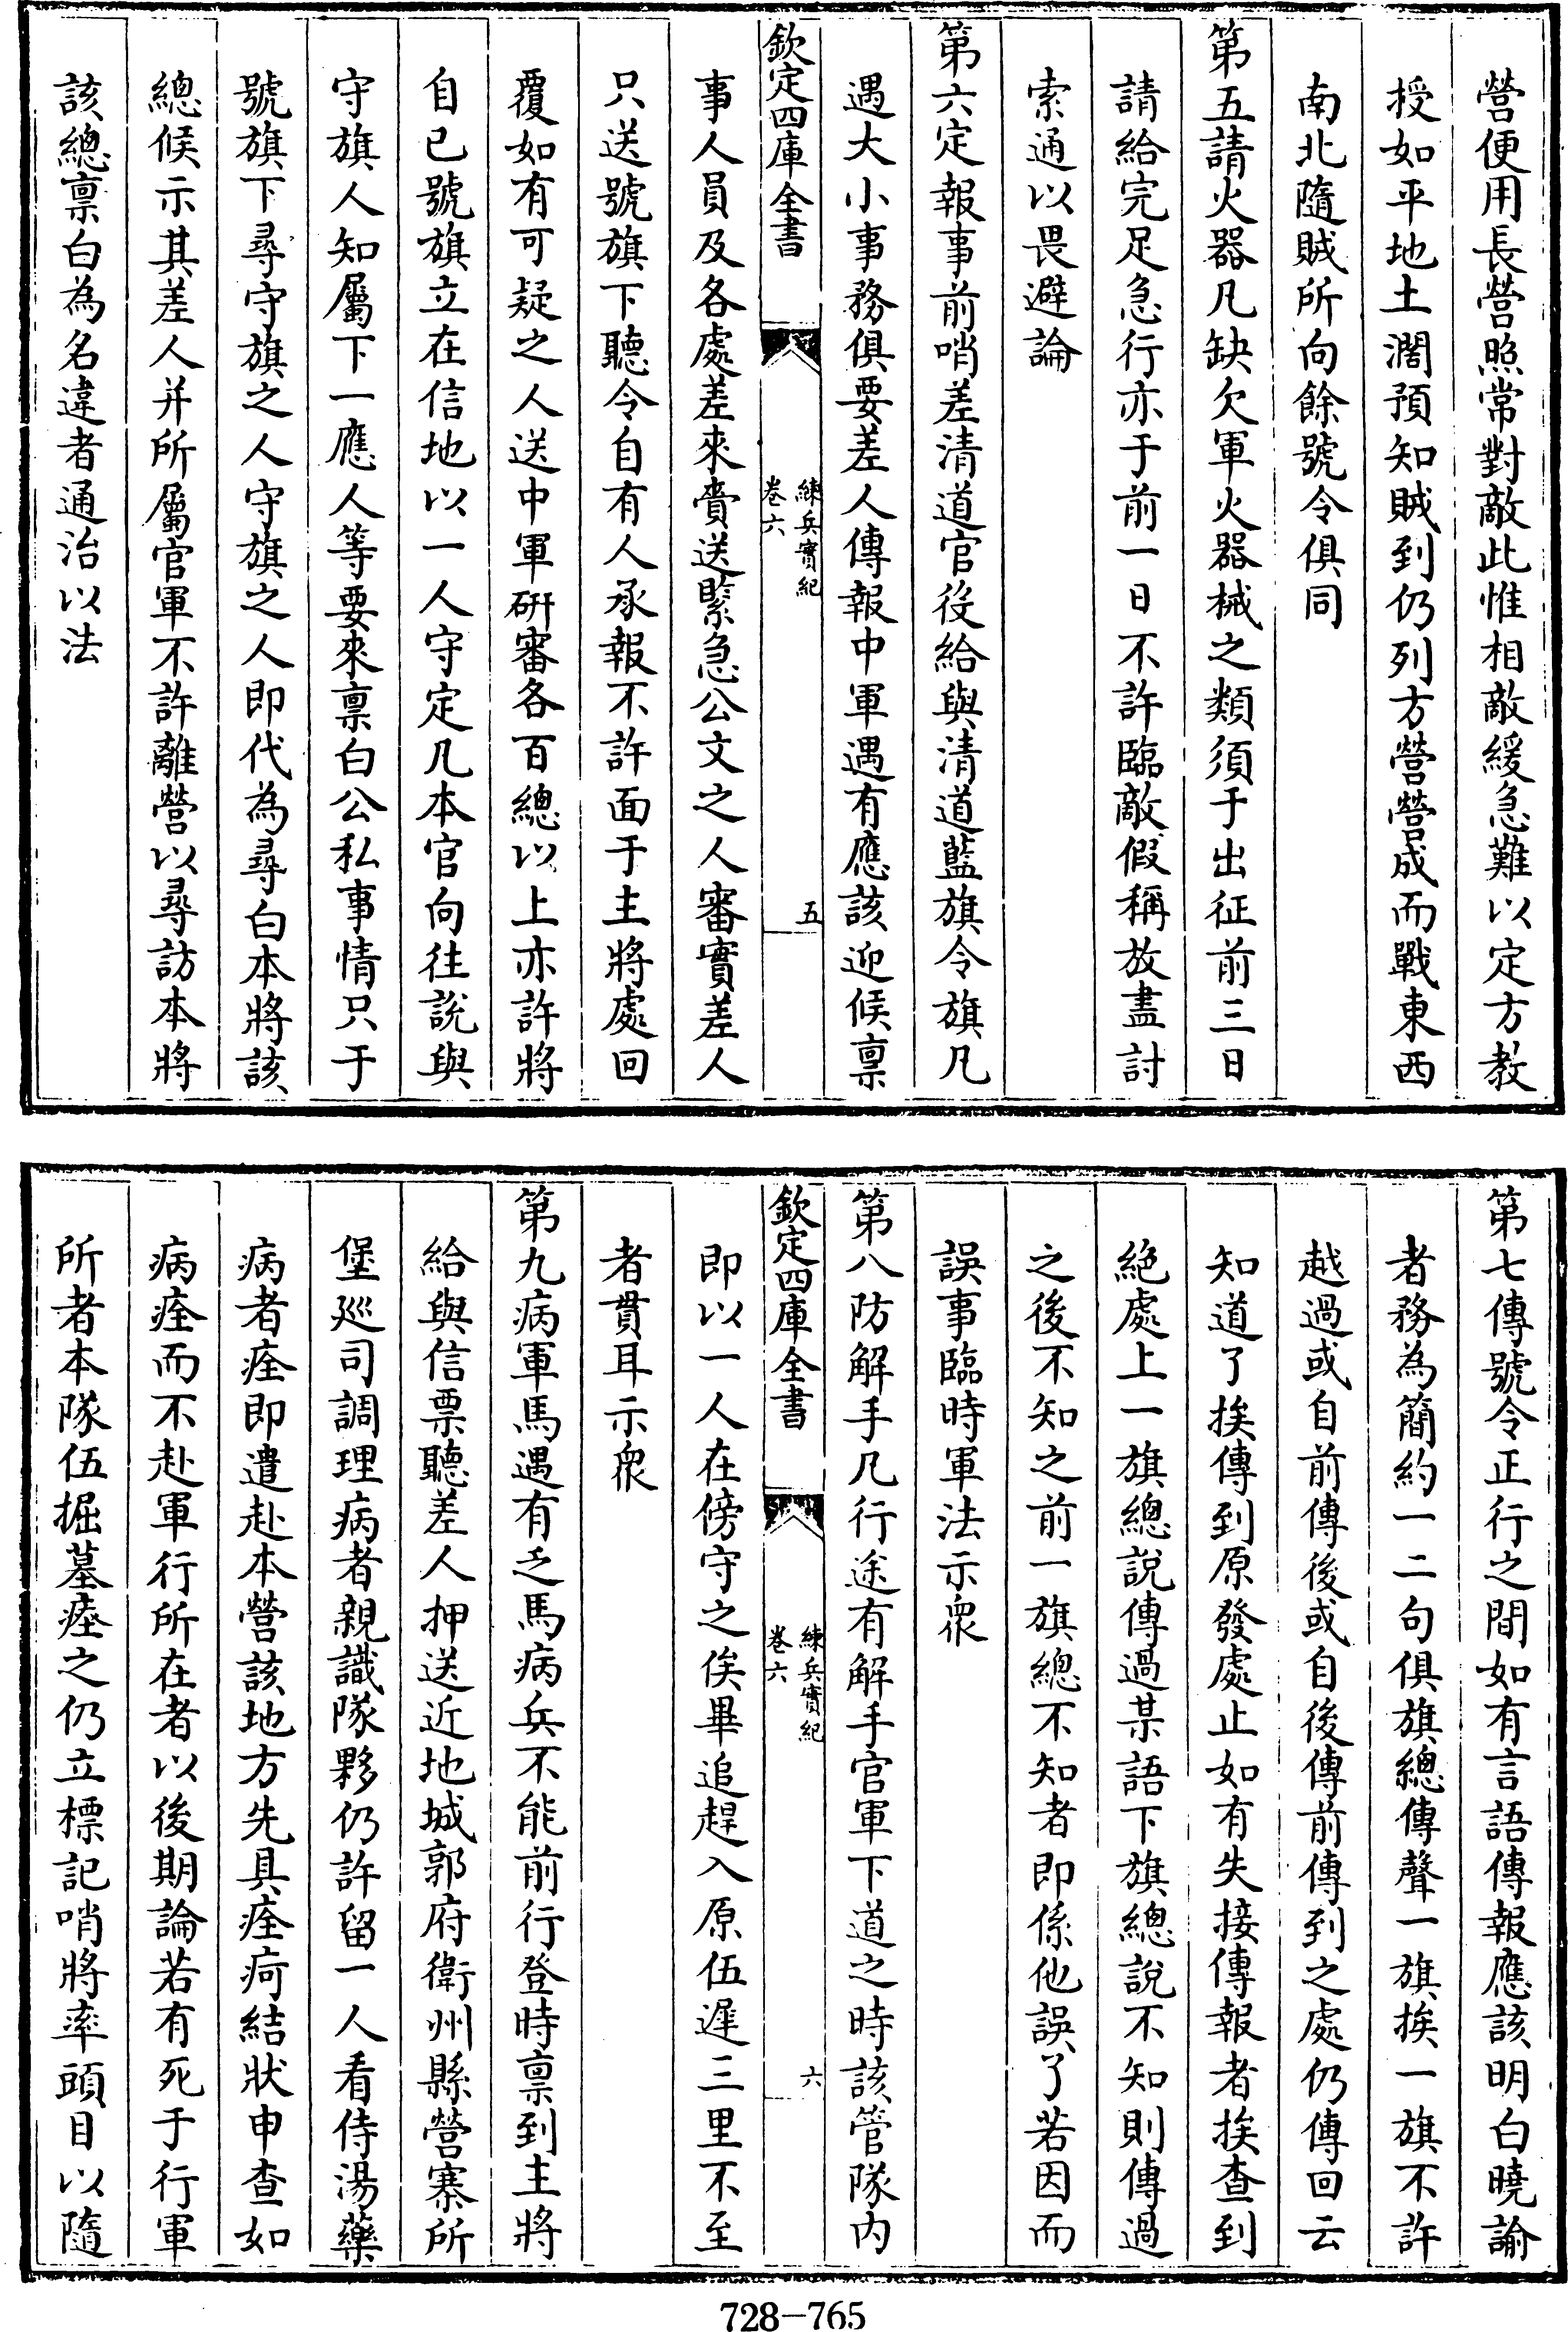 營便用長營照常對敵此惟相敵緩急難以定方教
授如平地土濶預知賊到仍列方營營成而戰東西
南北隨賊所向餘號令俱同
第五請火器凡缺欠軍火器械之類須于出征前三日
請給完足急行亦于前一日不許臨敵假稱放盡討
索通以畏避論
第六定報事前哨差清道官役給與清道藍旗令旗凡
遇大小事務俱要差人傳報中軍遇有應該迎候禀
欽定四庫全書
練兵實紀
卷六
五
事人員及各處差來賫送緊急公文之人審實差人
只送號旗下聽令自有人承報不許面于主將處回
覆如有可疑之人送中軍研審各百總以上亦許將
自已號旗立在信地以一人守定凡本官向往説與
守旗人知屬下一應人等要來禀白公私事情只于
號旗下尋守旗之人守旗之人即代為尋白本將該
總候示其差人并所屬官軍不許離營以尋訪本將
該總禀白為名違者通治以法
第七傳號令正行之間如有言語傳報應該明白曉諭
者務為簡約一二句俱旗總傳聲一旗挨一旗不許
越過或自前傳後或自後傳前傳到之處仍傳回云
知道了挨傳到原發處止如有失接傳報者挨查到
絕處上一旗總說傳過某語下旗總說不知則傳過
之後不知之前一旗總不知者即係他誤了若因而
誤事臨時軍法示衆
第八防解手凡行途有解手官軍下道之時該管隊内
欽定四庫全書
練兵實紀
卷六
六
即以一人在傍守之俟畢追趕入原伍遲三里不至
者貫耳示衆
第九病軍馬遇有乏馬病兵不能前行登時禀到主將
給與信票聽差人押送近地城郭府衛州縣營寨所
堡廵司調理病者親識隊夥仍許留一人看侍湯藥
病者痊即遣赴本營該地方先具痊疴結狀申查如
病痊而不赴軍行所在者以後期論若有死于行軍
所者本隊伍掘墓瘞之仍立標記哨將率頭目以隨
728-765